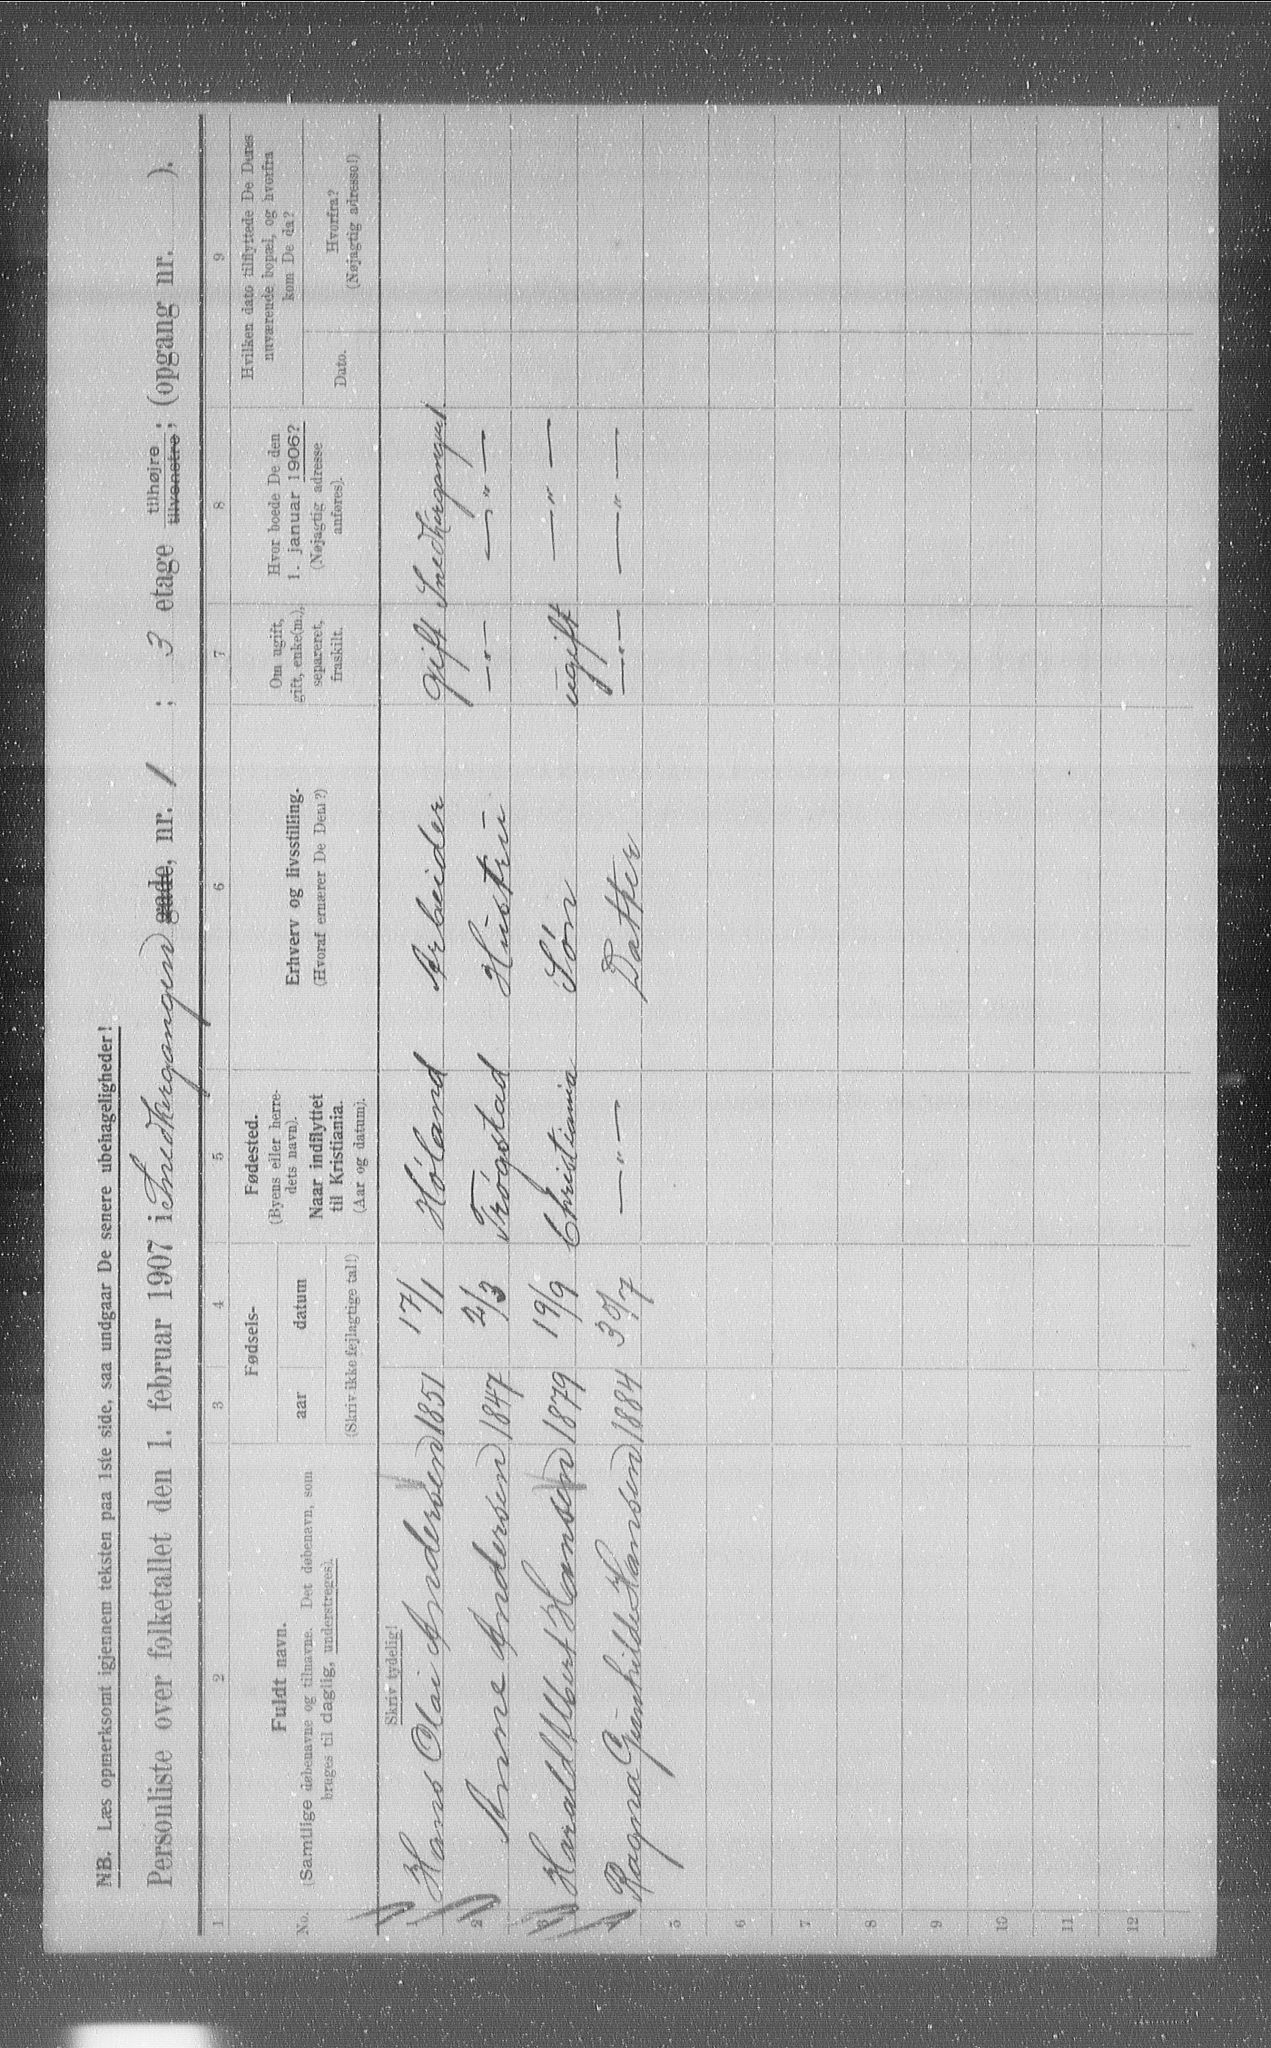 NB. Læs opmerksomt igjennem teksten paa 1ste side, saa undgaar De senere ubehageligheder!
Personliste over folketallet den 1. februar 1907 i Snedkergangen gade, nr. 1 ; 3 etage tilhøjre tilvenstre; (opgang nr. ).
1 2 3 4 5 6 7 8 9
No.
Fuldt navn.
(Samtlige døbenavne og tilnavne. Det døbenavn, som
bruges til daglig, understreges).
Fødsels-
aar datum
(Skriv ikke fejlagtige tal!)
Fødested.
(Byens eller herre-
dets navn).
Naar indflyttet
til Kristiania.
(Aar og datum).
Erhverv og livsstilling.
(Hvoraf ernærer De Dem?)
Om ugift,
gift, enke(m.),
separeret,
fraskilt.
Hvor boede De den
1. januar 1906?
(Nøjagtig adresse
anføres).
Hvilken dato tilflyttede De Deres
nuværende bopæl, og hvorfra
kom De da?
Dato.
Hvorfra?
(Nøjagtig adresse!)
Skriv tydelig!
1 Hans Olai Andersen 1851 17/1 Høland Arbeider gift
2 Anne Andersen 1847 2/3 Trøgstad Hustru —"— —"—
3 Harald Albert Hansen 1879 19/9 Christiania Søn ugift —"—
4 Ragna Gunhilde Hansen 1884 30/7 —"— Datter —"— —"—
5
6
7
8
9
10
11
12